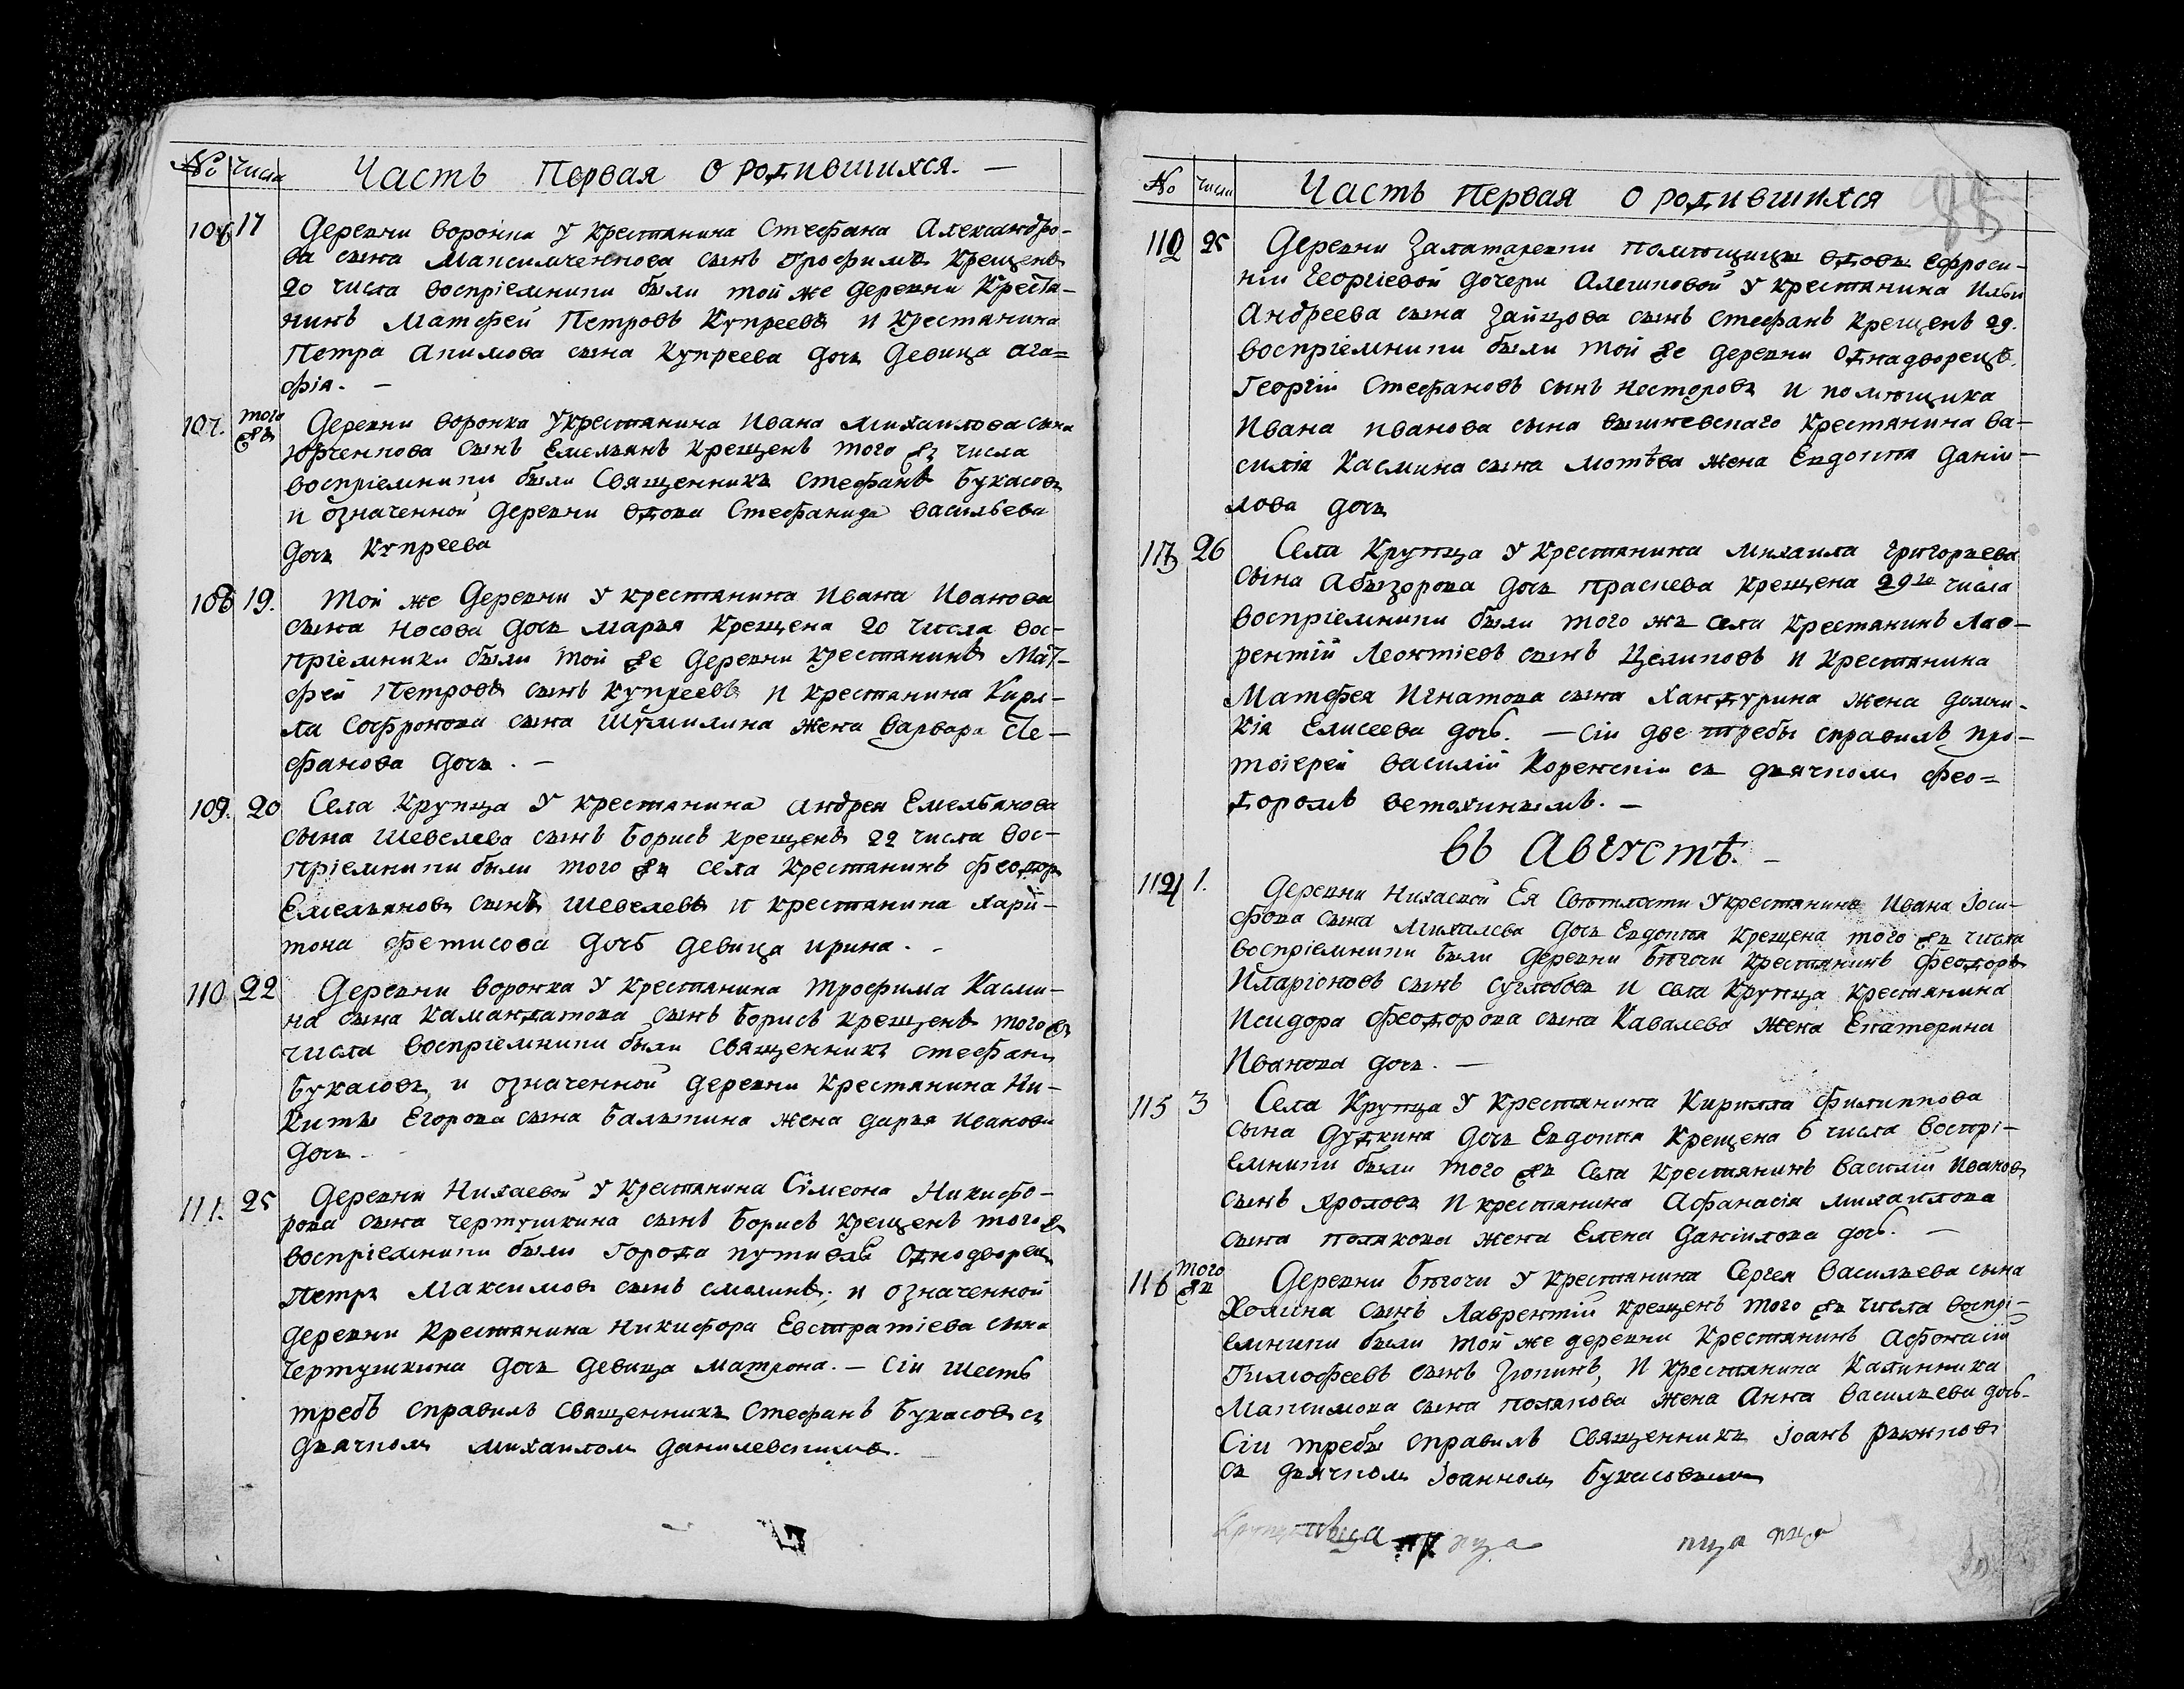 № Числа Часть Первая о родившихся. —
106 17 Деревни воронка у крестянина Стефана Александро-
ва сына Максимченкова сынъ трофимъ Крещенъ
20 числа воспріемники были той же деревни Крестя-
нинъ Матфей Петровъ Купреевъ и крестянина
Петра Акимова сына Купреева дочь девица ага=
фія. —
107. того жъ Деревни воронка у крестянина Ивана Михаилова сына
Юрченкова сынъ Емельянъ Крещенъ того жъ числа
воспріемники были Священникъ Стефанъ Букасовъ
и означенной деревни вдова Стефанида васильева
дочь Купреева
108 19. Той же деревни у крестянина Ивана Иванова
сына Носова дочь марья Крещена 20 числа вос-
пріемники были той же деревни крестянинъ Мат-
фей Петровъ сынъ Купреевъ и крестянина Кирил-
ла Софронова сына Шумилина жена варвара Сте-
фанова дочь. —
109. 20 Села Крупца у крестянина андрея Емельянова
сына Шевелева сынъ Борисъ крещенъ 22 числа вос-
пріемники были того жъ села Крестянинъ феодоръ
Емельяновъ сынъ Шевелевъ и крестянина хари-
тона фетисова дочь девица ирина. -
110 22 Деревни воронка у крестянина трофима Касми-
на сына Камандатова сынъ Борисъ крещенъ того жъ
числа воспріемники были священникъ стефанъ
Букасовъ, и означенной деревни Крестянина Ни-
киты Егорова сына Балыкина жена дарья иванова
дочь.
111. 25 Деревни Нихаевой у Крестянина Сѵмеона Никифо-
рова сына чертушкина сынъ Борисъ крещенъ того жъ
воспріемники были города путивля однодворецъ
Петръ Максимовъ сынъ смолинъ, и означенной
деревни крестянина никифора Евстратіева сына
чертушкина дочь девица матрона. — Сіи шесть
требъ справилъ священникъ Стефанъ Букасовъ съ
дьячкомъ михаиломъ данилевскимъ.
№ числа Часть первая о родившихся
88
112 25 Деревни Залатаревки помѣщицы вдовы ефроси-
ніи Георгіевой дочери Алешковой у крестянина Ильи
Андреева сына Зайцова сынъ стефанъ Крещенъ 29.
воспріемники были той же деревни однадворецъ
Георгій Стефановъ сынъ несторовъ и помѣщика
Ивана иванова сына вишневскаго Крестянина ва-
силія Касмина сына мотѣва жена Евдокія Даніи-
лова дочь
113 26 Села Крупца у крестянина михаила григорьева
сына Абызорова дочь праскева крещена 29го числа
воспріемники были того жъ села крестянинъ Лав-
рентій Леонтіевъ сынъ Целиковъ и крестянина
Матфея Игнатова сына хандурина жена домни-
кія Елисеева дочь. — Сіи две требы справилъ про-
тоіерей василій Коренскій съ дьячкомъ фео=
доромъ ветохинымъ. —
въ Августѣ. —
114 1. Деревни Нихаевой Ея Свѣтлости у крестянина Ивана Іоси-
фова сына Михалева дочь Евдокія Крещена того жъ числа
воспріемники были деревни бѣгочи крестянинъ феодоръ
Иларіоновъ сынъ Суглобовъ и села Крупца крестянина
Исидора феодорова сына Кавалева жена Екатерина
Иванова дочь. —
115 3 Села Крупца у крестянина Кирилла филиппова
сына дудкина дочь Евдокія Крещена 6 числа воспрі-
емники были того жъ Села крестянинъ василій Ивановъ
сынъ хроловъ и крестянина Афанасія михаилова
сына полякова жена Елена Даніилова дочь. —
116 того жъ Деревни бѣгочи у крестянина Сергея васильева сына
Холина сынъ Лаврентій крещенъ того жъ числа воспрі-
емники были той же деревни Крестянинъ афонасій
Тимофеевъ сынъ Зюкинъ, и крестянина Калинника
Максимова сына полякова жена Анна васильева дочь.
Сіи требы справилъ Священникъ Іоанъ рыжковъ
съ дьячкомъ Іоанномъ Букасовымъ
пца пца